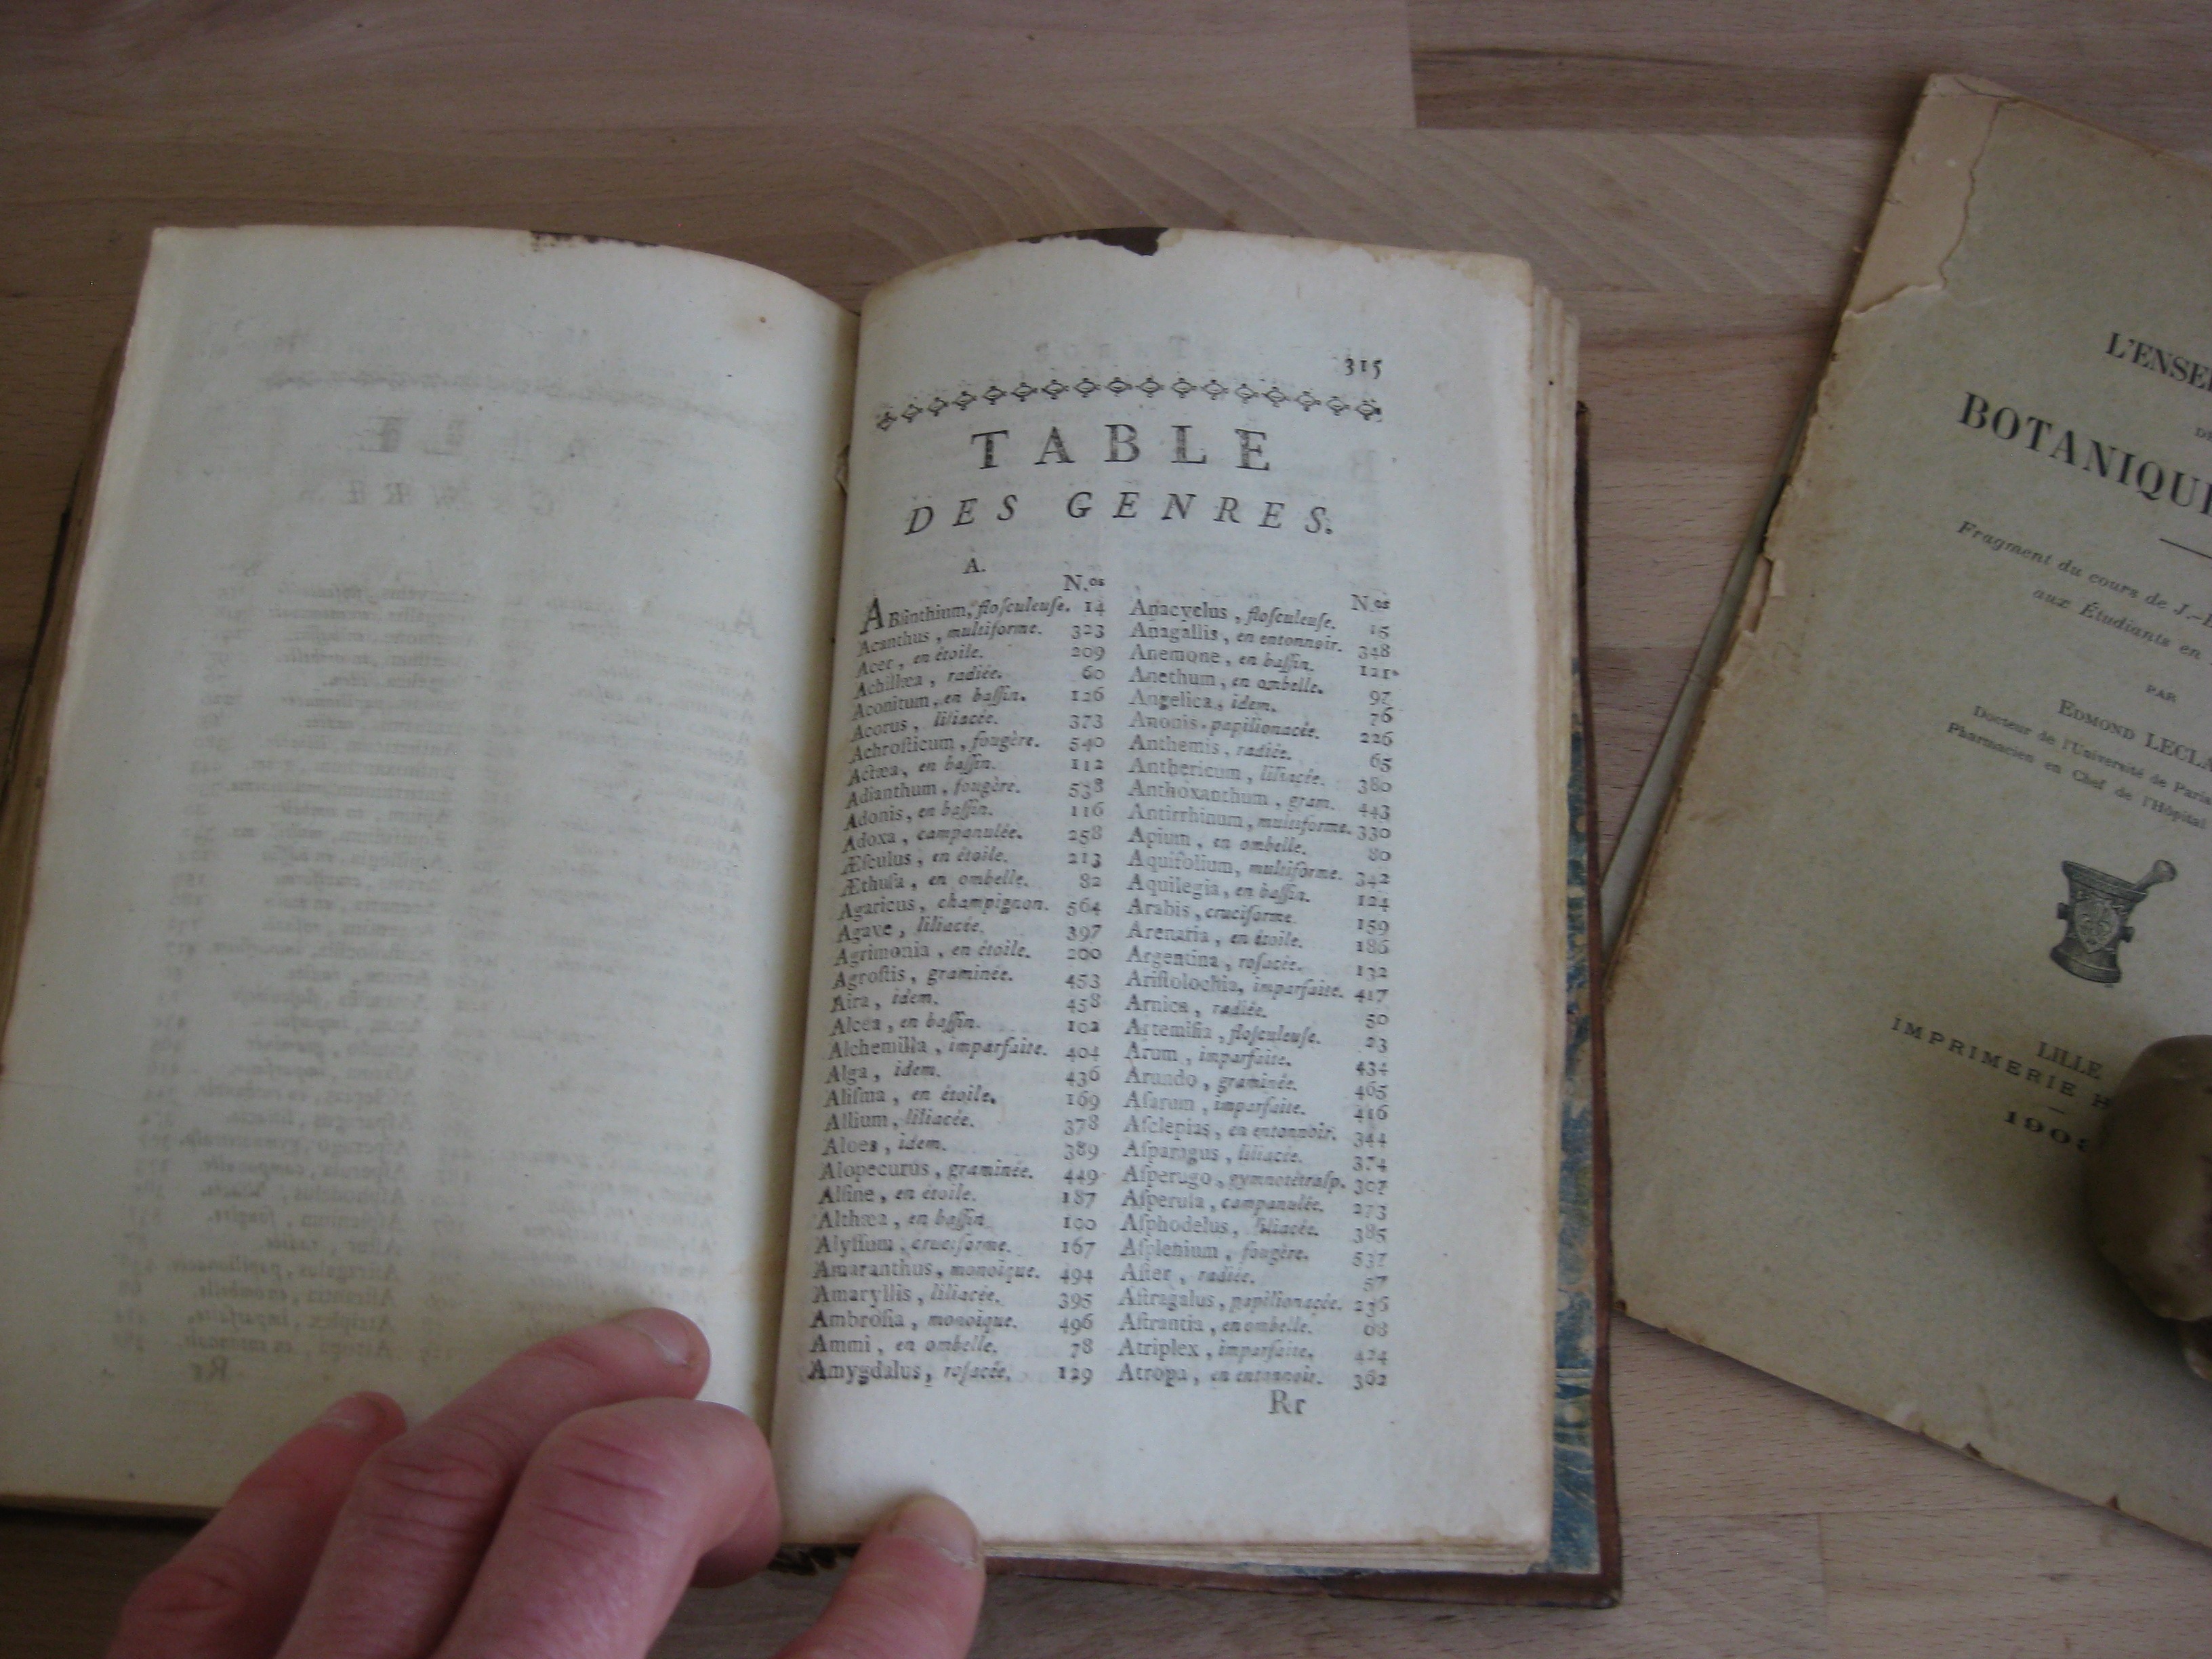 315
TABLE
DES GENRES.
A.
N.os
ABſinthium, floſculeuſe. 14
Acanthus, multiforme. 323
Acer, en étoile. 209
Achillæa, radiée. 60
Aconitum, en baſſin. 126
Acorus, liliacée. 373
Achroſticum, fougère. 540
Actæa, en baſſin. 112
Adianthum, fougère. 538
Adonis, en baſſin. 116
Adoxa, campanulée. 258
Æſculus, en étoile. 213
Æthuſa, en ombelle. 82
Agaricus, champignon. 564
Agave, liliacée. 397
Agrimonia, en étoile. 200
Agroſtis, graminée. 453
Aira, idem. 458
Alcea, en baſſin. 102
Alchemilla, imparfaite. 404
Alga, idem. 436
Aliſma, en étoile. 169
Allium, liliacée. 378
Aloes, idem. 389
Alopecurus, graminée. 449
Alſine, en étoile. 187
Althæa, en baſſin. 100
Alyſſum, cruciforme. 167
Amaranthus, monoïque. 494
Amaryllis, liliacée. 395
Ambroſia, monoïque. 496
Ammi, en ombelle. 78
Amygdalus, roſacée. 129
N.os
Anacyclus, floſculeuſe. 15
Anagallis, en entonnoir. 348
Anemone, en baſſin. 121
Anethum, en ombelle. 97
Angelica, idem. 76
Anonis, papilionacée. 226
Anthemis, radiée. 65
Anthericum, liliacée. 380
Anthoxanthum, gram. 443
Antirrhinum, multiforme. 330
Apium, en ombelle. 80
Aquifolium, multiforme. 342
Aquilegia, en baſſin. 124
Arabis, cruciforme. 159
Arenaria, en étoile. 186
Argentina, roſacée. 132
Ariſtolochia, imparfaite. 417
Arnica, radiée. 50
Artemiſia, floſculeuſe. 23
Arum, imparfaite. 434
Arundo, graminée. 465
Aſarum, imparfaite. 416
Aſclepias, en entonnoir. 344
Aſparagus, liliacée. 374
Aſperugo, gymnotétraſp. 307
Aſperula, campanulée. 273
Aſphodelus, liliacée. 385
Aſplenium, fougère. 537
Aſter, radiée. 57
Aſtragalus, papilionacée. 236
Aſtrantia, en ombelle. 68
Atriplex, imparfaite. 424
Atropa, en entonnoir. 362
Rr
L'ENSE
BOTANIQU
Fragment du cours de J.-
aux Étudiants en
PAR
EDMOND LECLA
Docteur de l'Université de Paris
Pharmacien en Chef de l'Hôpital
LILLE
IMPRIMERIE H
190